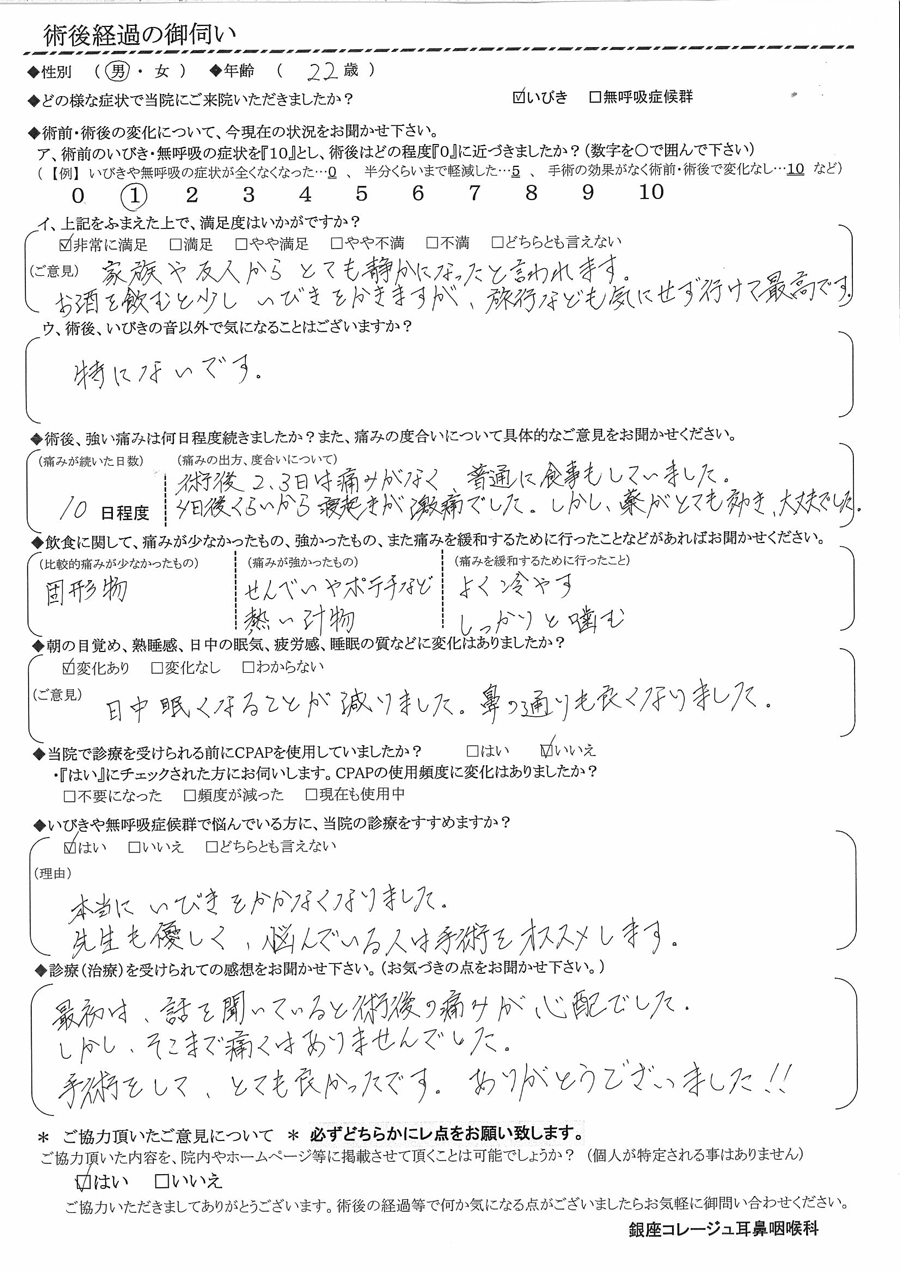 術後経過の御伺い
◆性別 （ 男 ・ 女 ） ◆年齢 （ 22歳 ）
◆どの様な症状で当院にご来院いただきましたか？ ☑いびき □無呼吸症候群
◆術前・術後の変化について、今現在の状況をお聞かせ下さい。
ア、術前のいびき・無呼吸の症状を『10』とし、術後はどの程度『0』に近づきましたか？（数字を○で囲んで下さい）
（【例】いびきや無呼吸の症状が全くなくなった…0 、 半分くらいまで軽減した…5 、 手術の効果がなく術前・術後で変化なし…10 など）
0 1 2 3 4 5 6 7 8 9 10
イ、上記をふまえた上で、満足度はいかがですか？
☑非常に満足 □満足 □やや満足 □やや不満 □不満 □どちらとも言えない
（ご意見） 家族や友人から とても静かになったと言われます。
お酒を飲むと少し いびきをかきますが、旅行なども気にせず行けて最高です。
ウ、術後、いびきの音以外で気になることはございますか？
特にないです。
◆術後、強い痛みは何日程度続きましたか？また、痛みの度合いについて具体的なご意見をお聞かせください。
（痛みが続いた日数） （痛みの出方、度合いについて）
術後2、3日は痛みがなく、普通に食事もしていました。
10 日程度 4日後くらいから寝起きが激痛でした。しかし、薬がとても効き、大丈夫でした。
◆飲食に関して、痛みが少なかったもの、強かったもの、また痛みを緩和するために行ったことなどがあればお聞かせください。
（比較的痛みが少なかったもの） （痛みが強かったもの） （痛みを緩和するために行ったこと）
固形物 せんべいやポテチなど よく冷やす
熱い汁物 しっかりと噛む
◆朝の目覚め、熟睡感、日中の眠気、疲労感、睡眠の質などに変化はありましたか？
☑変化あり □変化なし □わからない
（ご意見） 日中眠くなることが減りました。鼻の通りも良くなりました。
◆当院で診療を受けられる前にCPAPを使用していましたか？ □はい ☑いいえ
・『はい』にチェックされた方にお伺いします。CPAPの使用頻度に変化はありましたか？
□不要になった □頻度が減った □現在も使用中
◆いびきや無呼吸症候群で悩んでいる方に、当院の診療をすすめますか？
☑はい □いいえ □どちらとも言えない
（理由）
本当に いびきをかかなくなりました。
先生も優しく、悩んでいる人は手術をオススメします。
◆診療（治療）を受けられての感想をお聞かせ下さい。（お気づきの点をお聞かせ下さい。）
最初は、話を聞いていると術後の痛みが心配でした。
しかし、そこまで痛くはありませんでした。
手術をして、とても良かったです。ありがとうございました!!
＊ ご協力頂いたご意見について ＊ 必ずどちらかにレ点をお願い致します。
ご協力頂いた内容を、院内やホームページ等に掲載させて頂くことは可能でしょうか？（個人が特定される事はありません）
☑はい □いいえ
ご協力いただきましてありがとうございます。術後の経過等で何か気になる点がございましたらお気軽に御問い合わせください。
銀座コレージュ耳鼻咽喉科